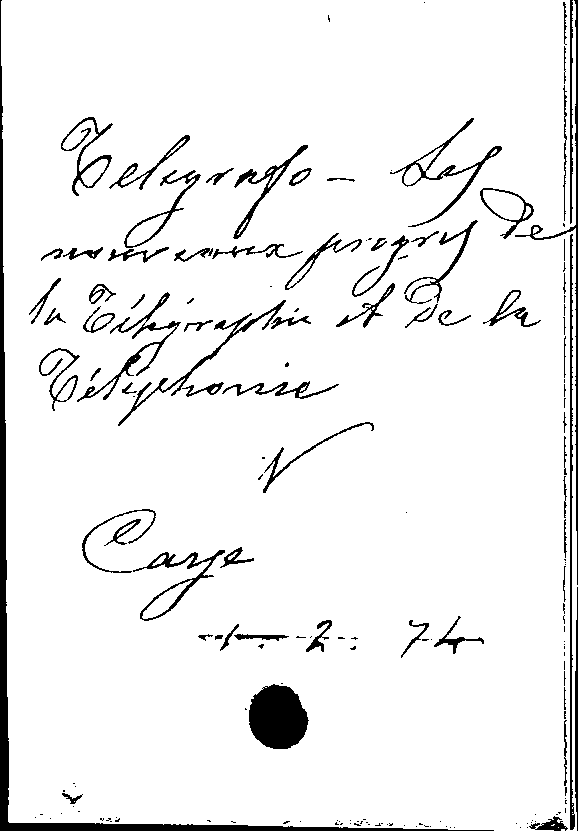 Telegrafo - Les
nouveaux progrés de
la Télégraphie et de la
Téléphonie
V
Caze
1. 2. 74